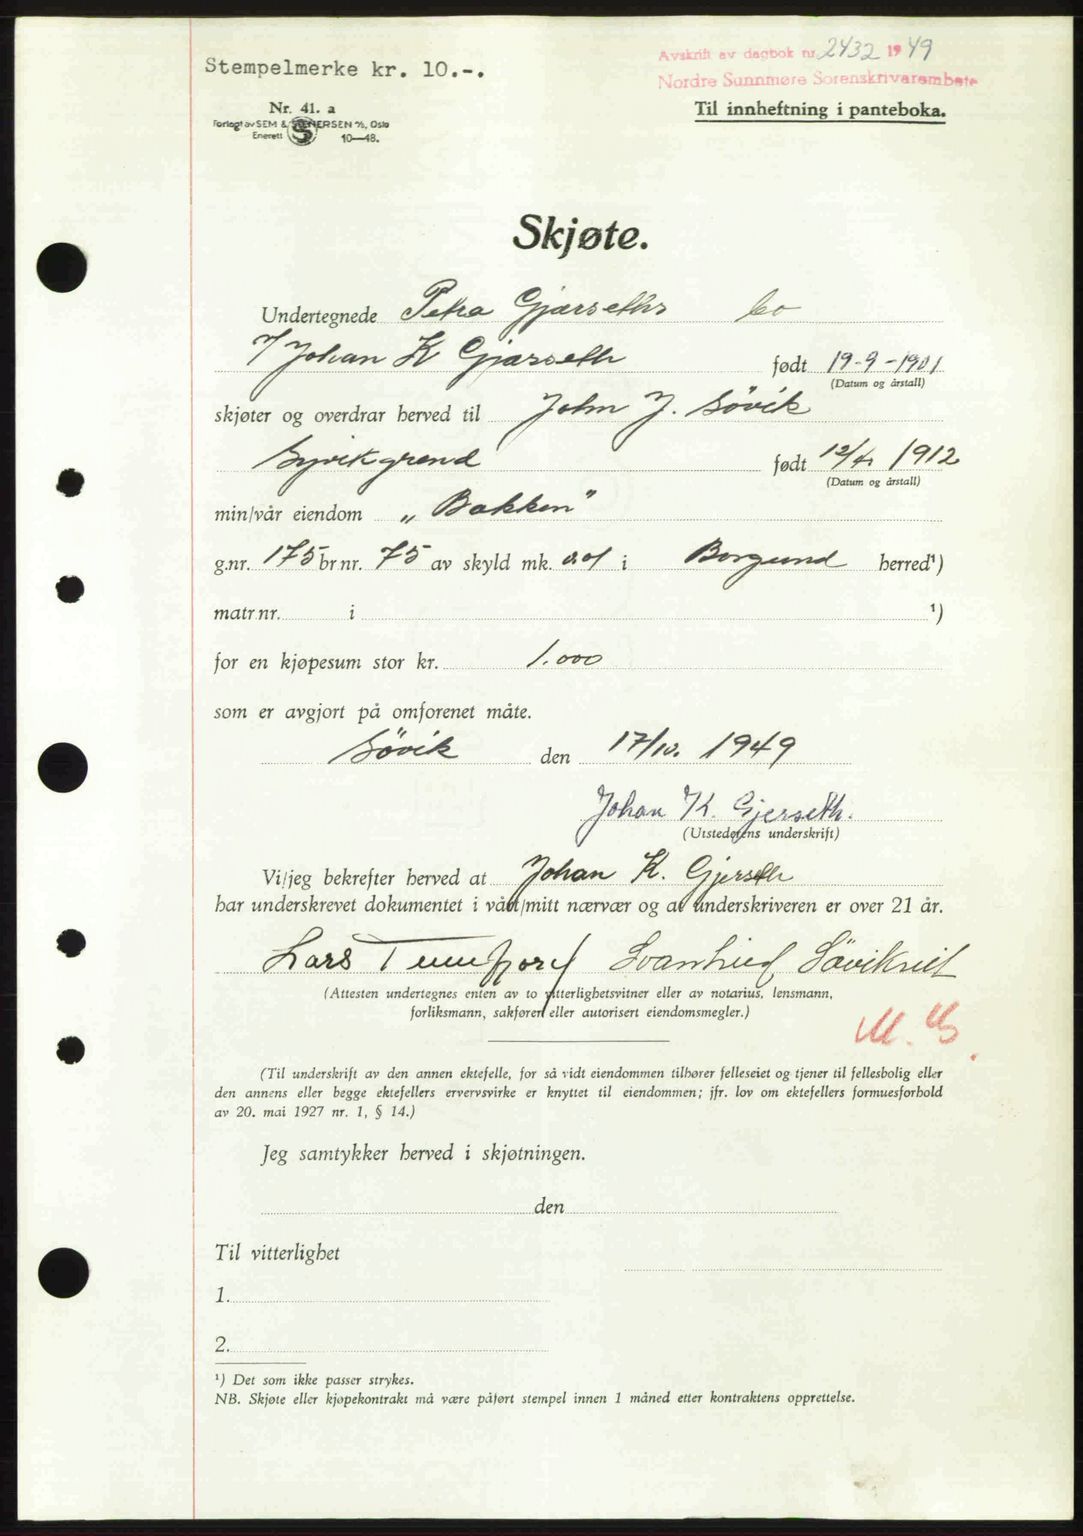 Stempelmerke kr. 10.-.
Avskrift av dagbok nr. 2432 1949
Nordre Sunnmøre Sorenskrivarembete
Nr. 41. a
Forlagt av SEM & STENERSEN A/S, Oslo
Enerett 10—48.
Til innheftning i panteboka.
Skjøte.
Undertegnede Petra Gjærseths bo
v/ Johan K Gjærseth født 19-9-1901
(Datum og årstall)
skjøter og overdrar herved til John J. Søvik
Syvikgrend født 12/4 1912
(Datum og årstall)
min/vår eiendom „Bakken"
g.nr. 175 br.nr. 75 av skyld mk. 0.01 i Borgund herred¹)
matr.nr. i ¹)
for en kjøpesum stor kr. 1.000
som er avgjort på omforenet måte.
Søvik den 17/10. 1949
Johan K. Gjerseth.
(Utstederens underskrift)
Vi/jeg bekrefter herved at Johan K. Gjerseth
har underskrevet dokumentet i vårt/mitt nærvær og at underskriveren er over 21 år.
Lars Svanhild Søviknes
(Attesten undertegnes enten av to vitterlighetsvitner eller av notarius, lensmann,
forliksmann, sakfører eller autorisert eiendomsmegler.)
(Til underskrift av den annen ektefelle, for så vidt eiendommen tilhører felleseiet og tjener til fellesbolig eller
den annens eller begge ektefellers ervervsvirke er knyttet til eiendommen; jfr. lov om ektefellers formuesforhold
av 20. mai 1927 nr. 1, § 14.)
Jeg samtykker herved i skjøtningen.
den
Til vitterlighet
1.
2.
¹) Det som ikke passer strykes.
NB. Skjøte eller kjøpekontrakt må være påført stempel innen 1 måned etter kontraktens opprettelse.